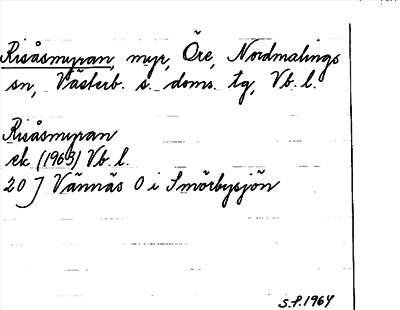 Risåsmyran, myr, Öre, Nordmalings
sn, Västerb. s. doms. tg, Vb. l.
Risåsmyran
ek (1963) Vb. l.
20 J Vännäs O i Smörbysjön
S.P. 1964